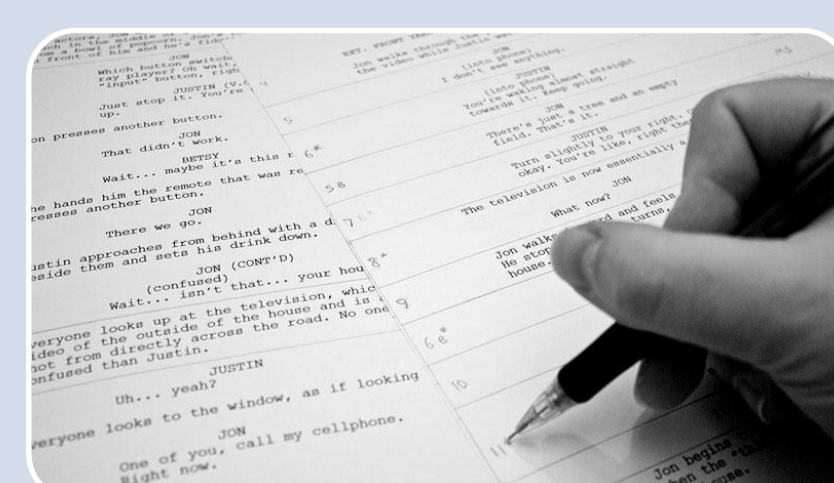 actors, Jon
in the middle of
a bowl of popcorn. Jon's
front of him and he's
JON
Which button switch
ray player? Oh wait,
"input" button, righ
JUSTIN (V.
Just stop it. You're
up.
on presses another button.
JON
That didn't work.
BETSY
Wait... maybe it's this r
he hands him the remote that was re
resses another button.
JON
There we go.
ustin approaches from behind with a d
eside them and sets his drink down.
JON (CONT'D)
(confused)
Wait... isn't that... your hou
veryone looks up at the television, whic
ideo of the outside of the house and is
hot from directly across the road. No one
onfused than Justin.
JUSTIN
Uh... yeah?
veryone looks to the window, as if looking
JON
One of you, call my cellphone.
Right now.
EXT. FRONT
Jon walks through the
the video while Justin
JON
(into phone)
I don't see anything.
JUSTIN
(into phone)
You're waking almost straight
towards it. Keep going.
5
JON
There's just a tree and an empty
field. That's it.
6*
JUSTIN
Turn slightly to your right.
okay. You're like, right the
5B
The television is now essentially a
7
JON
What now?
8*
Jon walks and feels
He stop turns,
house.
9
6B*
10
11
Jon begins
when the "th
house.